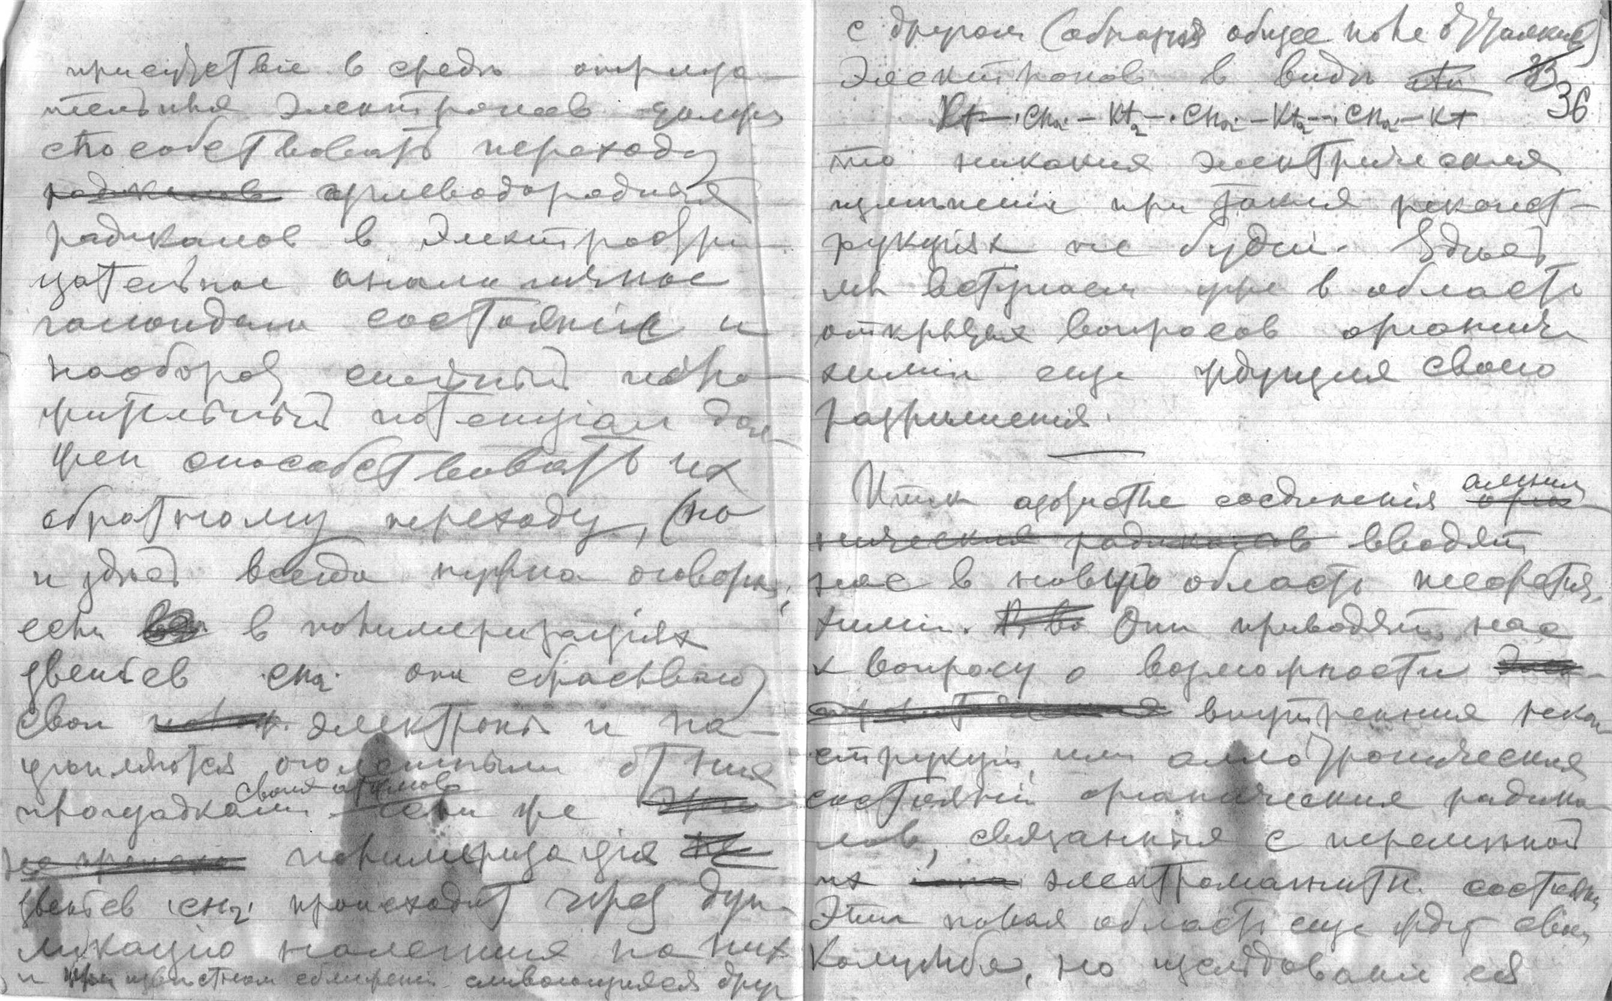 присутствіе в средѣ отрица-
тельныя электронов должн
способствовать переходу
радикалов углеводородныя
радикалов в электроотри-
цательное аналогичное
галоидам состояніе и
наоборот сильный поло-
жительный потенціал дол-
жен способствовать их
обратному переходу, (но
и здѣсь всегда нужна оговорка,
если в полимеризаціях
звеньев CH₂ они сбрасывают
свои электроны и на-
цѣпляются оголенными от них
своих атомов
площадками если же
полимеризація
звеньев CH₂ происходит через дуп-
ликацію налегшия на них
и при извѣстном сближеніи сливающихся друг
с другом (образуя общее поле
электронов в видѣ
33
36
Kt—·CH₂—Kt₂—·CH₂—Kt₂—·CH₂—Kt
то никакия электрическия
измѣненія при такия реконст-
рукціях не будет. Здѣсь
мы вступаем уже в область
открытых вопросов органич
химіи еще ждущия своего
разрѣшенія.
Итак азотистые соединенія
нических радикалов вводят
нас в новую область неорганич.
химіи. Они приводят нас
к вопросу о возможности
внутренния рекон
струкцій, или аллотропическия
состояній органическия радика
лов, связанныя с перемѣной
их электромагнитн. состоянія
Эта новая область еще ждет своего
Колумба, но изслѣдованіе ея